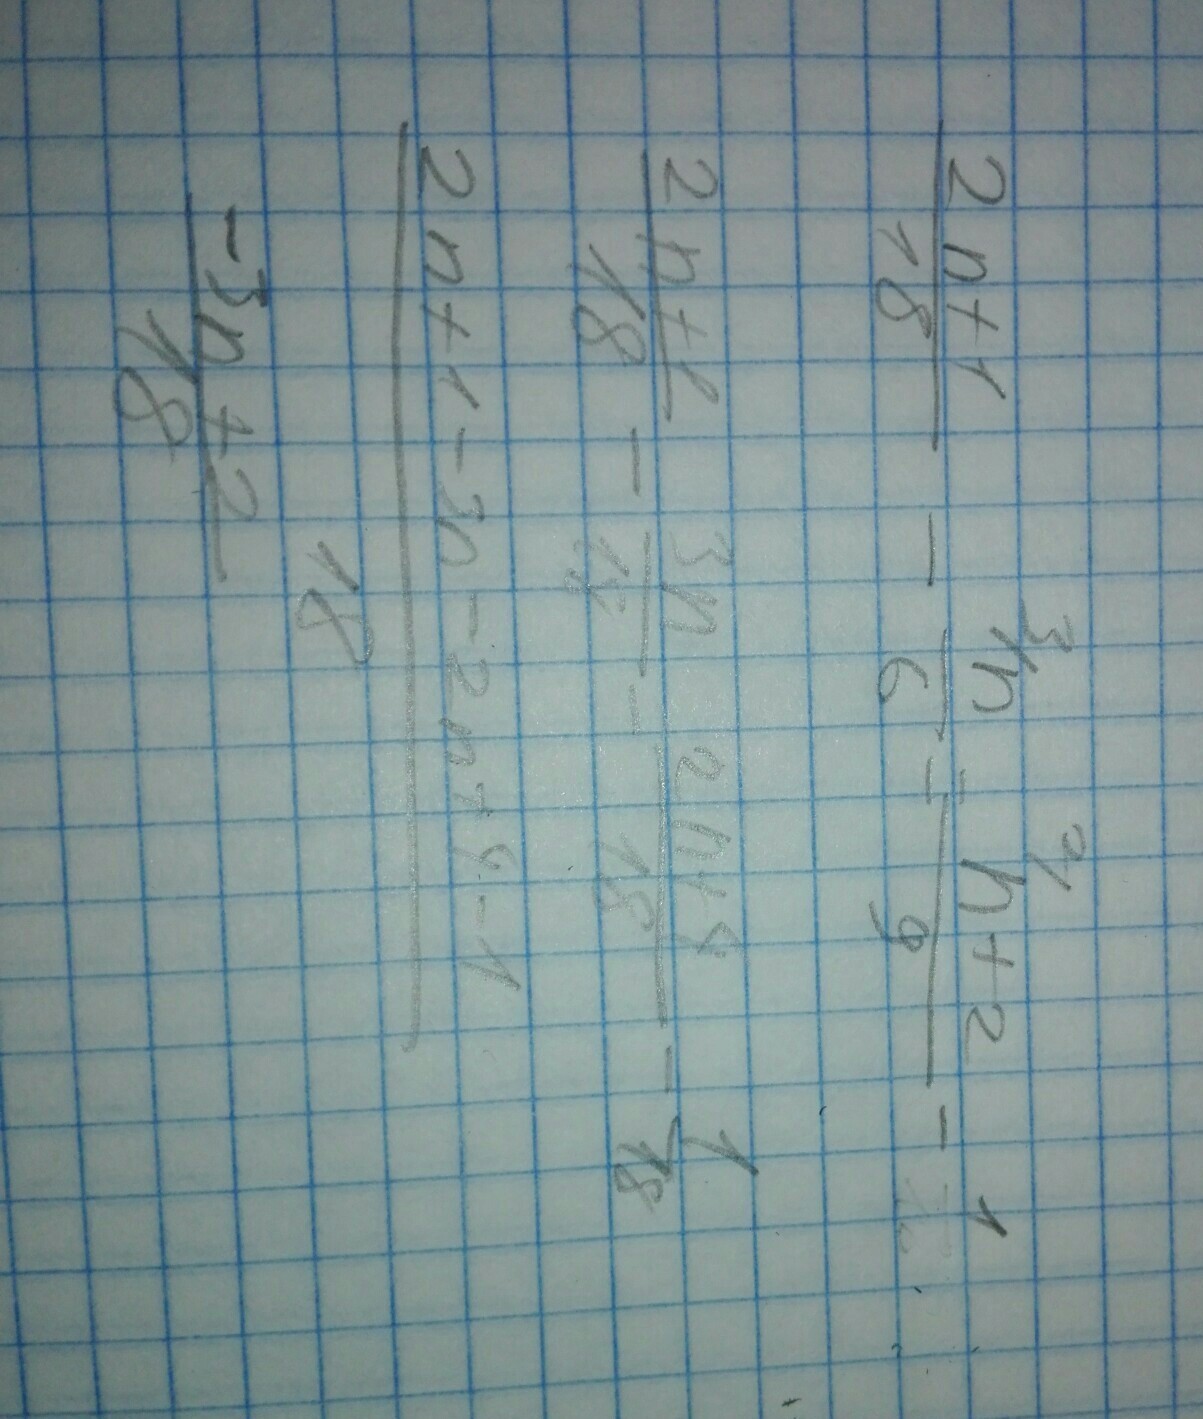 (2n+1)/18 - ³⁄n/6 - ²⁄(n+2)/9 - 1
(2n+1)/18 - 3n/18 - (2n+4)/18 - 1/18
(2n+1-3n-2n+4-1)/18
(-3n+2)/18